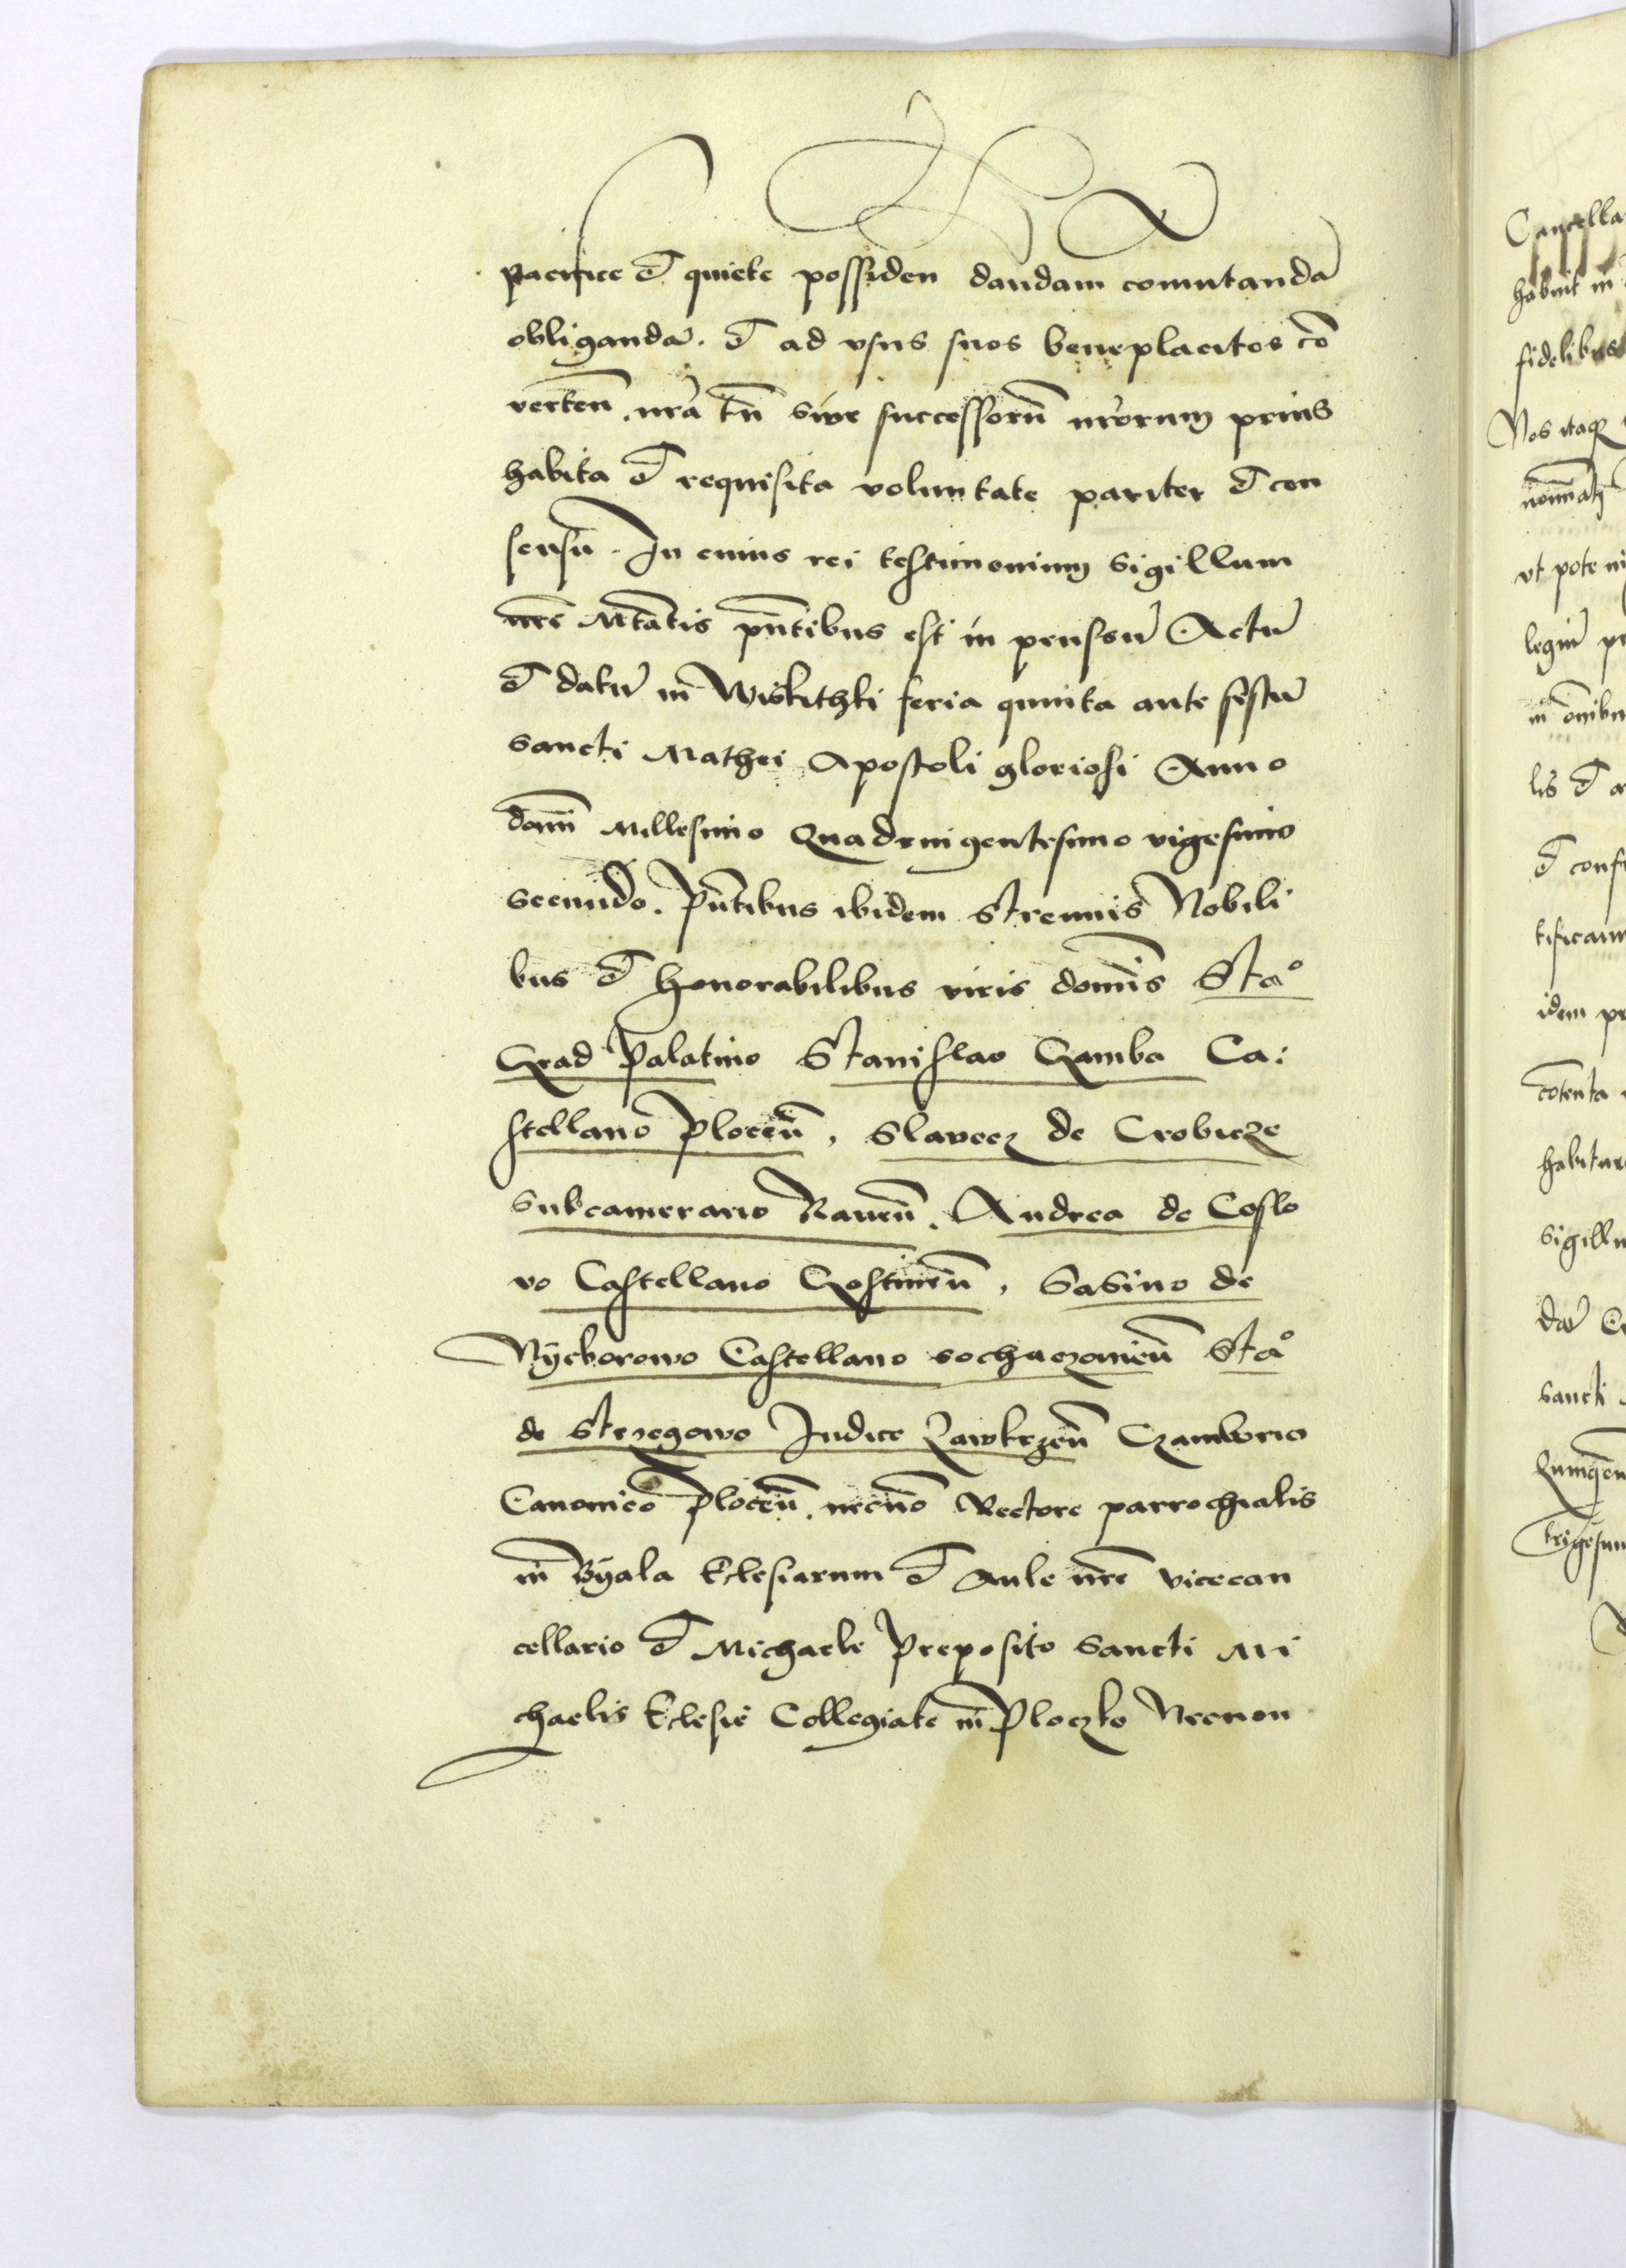 pacifice et quiete possiden dandam comutandā
obligandā. et ad vsus suos beneplacitos cō
verten̄. nr̄a tn̄ sive successorū nr̄orum prius
habita et requisita voluntate pariter et con
sensu. In cuius rei testimonium sigillum
nr̄e Mtātis pn̄tibus est in pensum̄ Actū
et datū in Wiskithki feria quinta ante festū
sancti Mathei Apostoli gloriosi Anno
domī Millesimo Quadringentesimo vigesimo
secundo. Pn̄tibus ibidem Strenuis Nobili
bus et honorabilibus viris domīs Sta°
Grad Palatino Stanislao Gamba Ca:
stellano Plocen̄, Slavecz de Crobicze
Subcamerario Raven̄. Andrea de Coslo
vo Castellano Gostinen̄, Sasino de
Nyeborowo Castellano sochaczovien̄ Sta°
de Strzegowo Judice Zawkrzen̄ Czamborio
Canonico Plocen̄. necnō Rectore parrochialis
in Byala Eclesiarum et Aule nr̄e vicecan
cellario et Michaele Preposito Sancti Mi
chaelis Eclesie Collegiate in Ploczko Necnon
Cancella
habuit in
fidelibus
Nos itaqȝ
ut pote
in om̄ibu
idem
contenta
Sigillu
Sancti